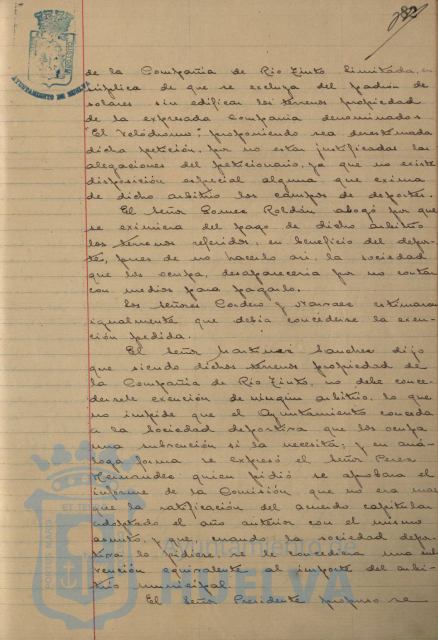 82
AYUNTAMIENTO DE HUELVA
de la Compañia de Rio Tinto Limitada, en
súplica de que se excluya del padrón de
solares sin edificar los terrenos propiedad
de la expresada Compañia denominados
"El Velódromo"; proponiendo sea desestimada
dicha petición, por no estar justificadas las
alegaciones del peticionario, ya que no existe
disposición especial alguna que exima
de dicho arbitrio los campos de deportes.
El Señor Gomez Roldán abogó por que
se eximiera del pago de dicho arbitrio
los terrenos referidos, en beneficio del depor-
te, pues de no hacerlo asi, la sociedad
que los ocupa, desapareceria por no contar
con medios para pagarlo.
Los Señores Cordero y Narvaez estimaron
igualmente que debia concederse la exen-
ción pedida.
El Señor Martinez Sanchez dijo
que siendo dichos terrenos propiedad de
la Compañia de Rio Tinto, no debe conce-
dersele exención de ningún arbitrio, lo que
no impide que el Ayuntamiento conceda
a la Sociedad deportiva que los ocupa
una subvención si la necesita; y en aná-
loga forma se expresó el Señor Perez
Hernandez quien pidió se aprobara el
informe de la Comisión que no era mas
que la ratificación del acuerdo capitular
adoptado el año anterior con el mismo
asunto, y que, cuando la sociedad depor-
tiva lo pidiere se le concediera una sub-
vención equivalente al importe del arbi-
trio municipal.
El Señor Presidente propuso se
Ayuntamiento de
HUELVA